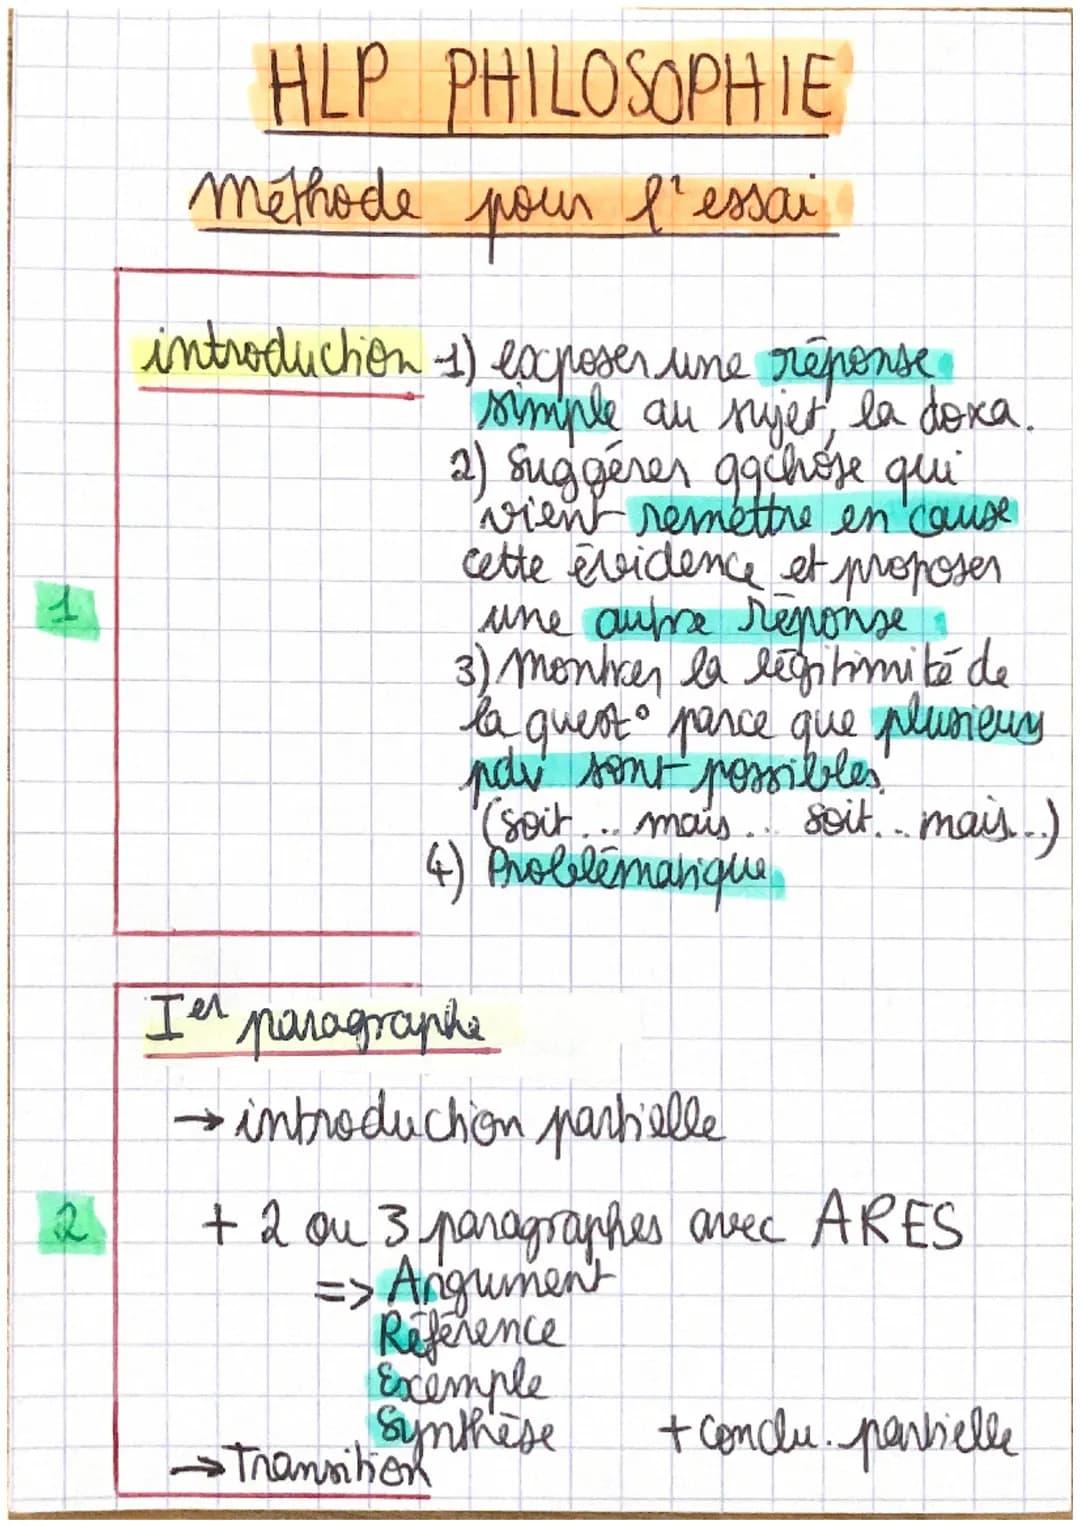 HLP PHILOSOPHIE
Méthode pour l'essai
introduction 1) exposer une réponse
simple au sujet, la doxa.
2) Suggérer qqchose qui
vient remettre en cause
cette évidence et proposer
1
une autre réponse
3) Montrer la légitimité de
la quest° parce que plusieurs
pdv sont possibles.
(soit... mais... soit... mais...)
4) Problématique
Ier paragraphe
→ introduction partielle
2
+ 2 ou 3 paragraphes avec ARES
=> Argument
Référence
Exemple
Synthèse + conclu. partielle
→ Transition